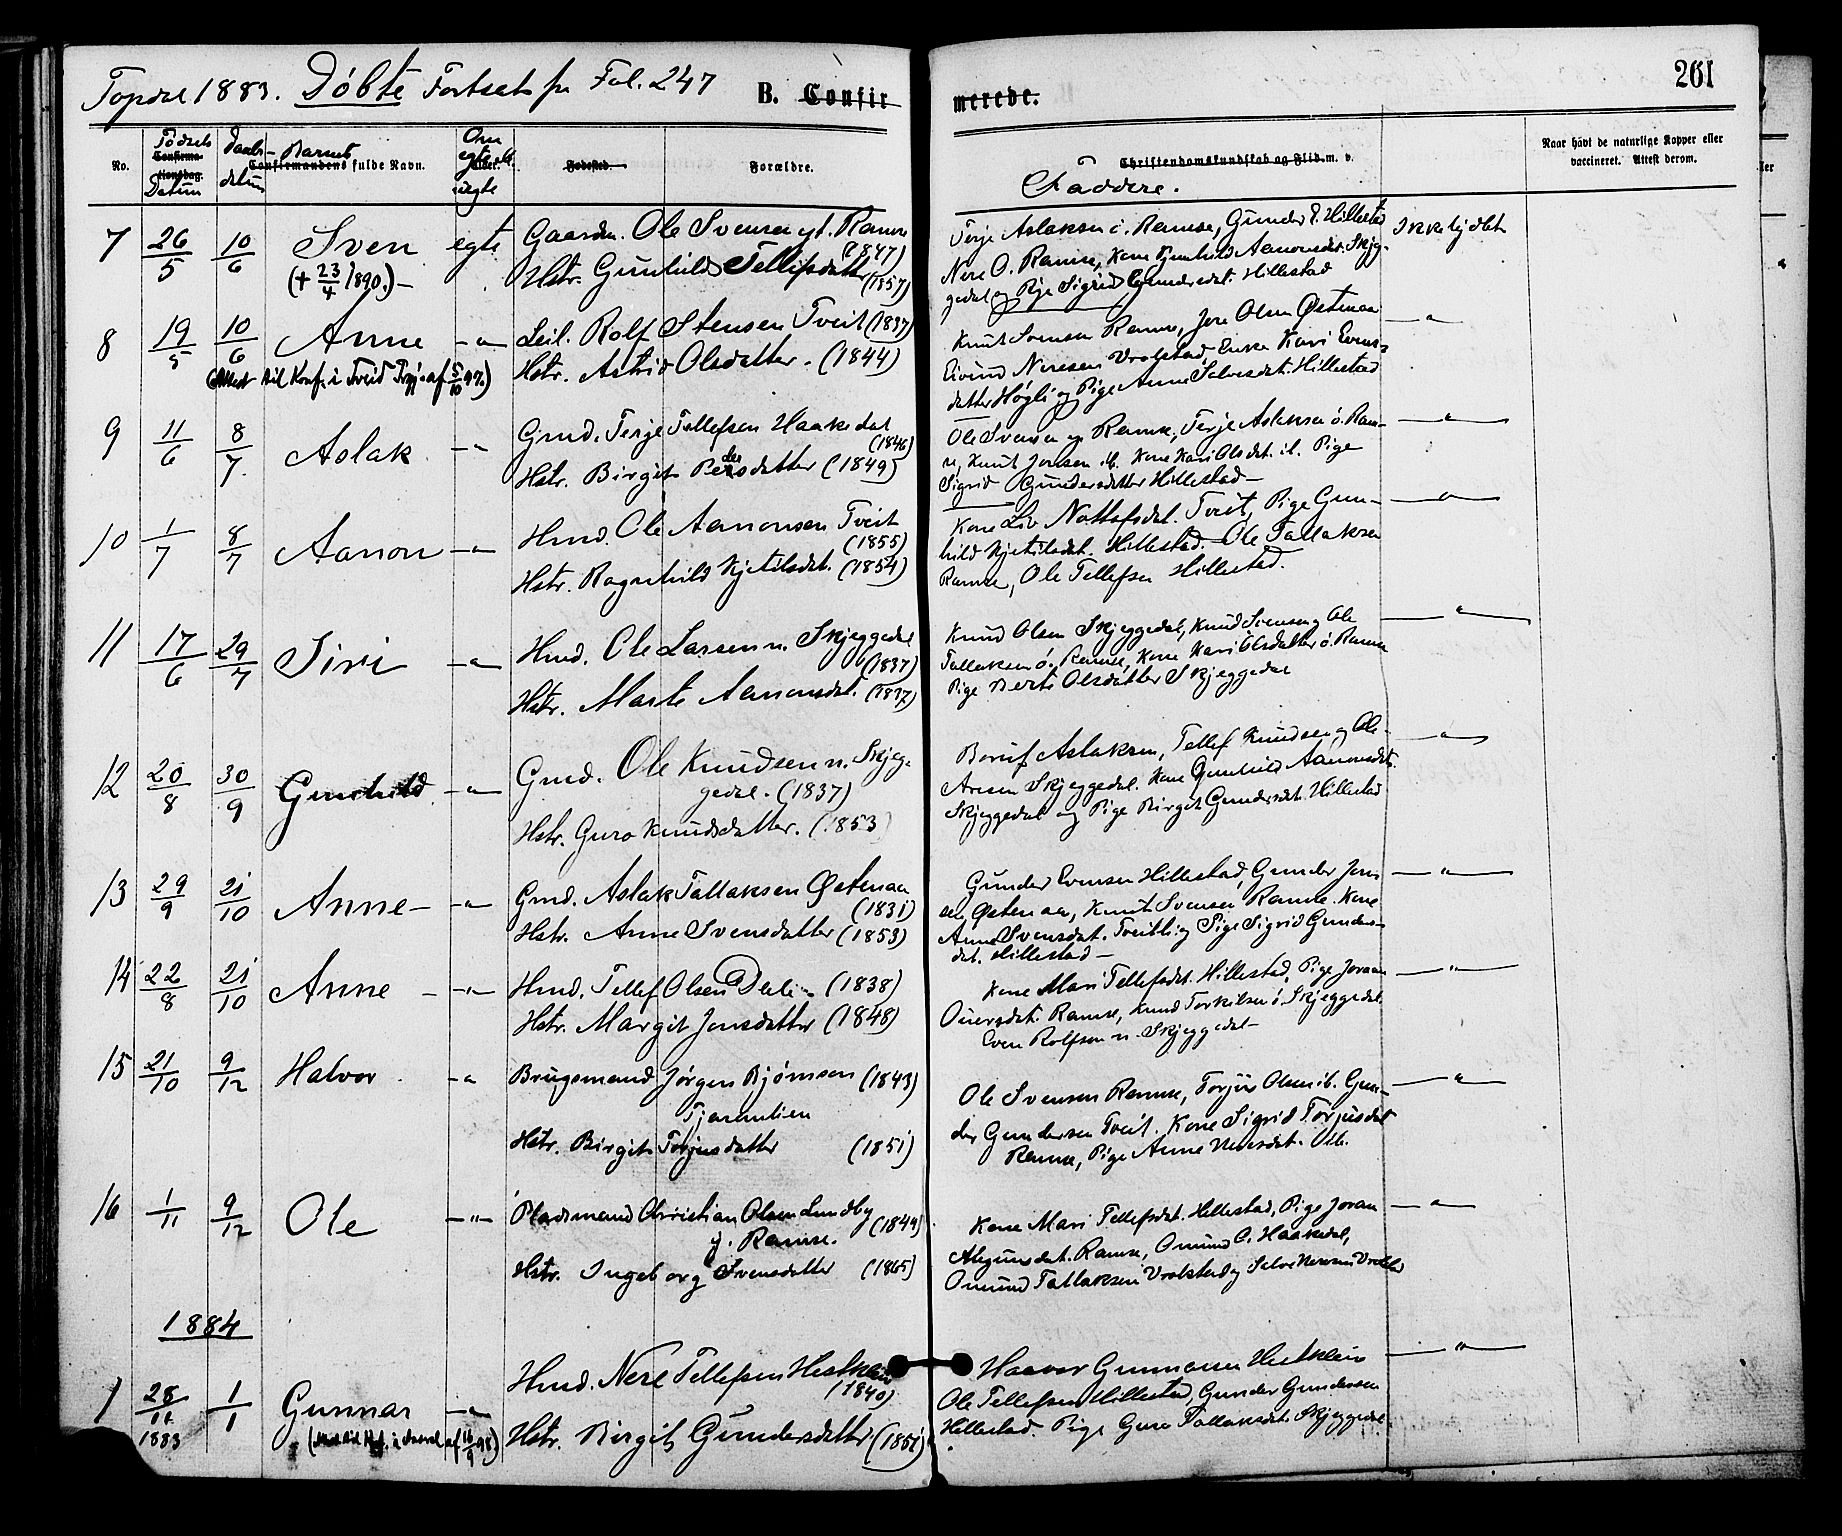 Topdal 1883. Døbte Fortset fr Fol. 247 B. Confirmerede. 261
No. Fødsels Datum Confirmationsdag. Daabsdatum Barnets Confirmandens fulde Navn. Om egte el. uegte Alder. Fødested. Forældre. Christendomskundskab og Flid m. v. Faddere. Naar havt de naturlige Kopper eller vaccineret. Attest derom.
7 26/5 10/6 Sven egte Gaardm. Ole Svensen yt. Ramse (1847)
(+ 23/4 1890.) Hstr. Gunhild Tellefsdatter (1857)
Terje Aslaksen i. Ramse, Gunder E. Hillestad Ikke hjdbt
Nere O. Ramse, Kone Gunhild Aanonsdat. Skjeg-
gedal og Pige Sigrid Gundersdat. Hillestad
8 19/5 10/6 Anne -"- Leil. Rolf Stensen Tveit (1837)
(Attest til Konf. i Tveid Prgj. af 5/10 97.) Hstr. Astrid Olsdatter. (1844)
Knut Svensen Ramse, Jens Olsen Østenaa -"-
Eivind Neresen Vrolstad, Enke Kari Evens-
datter Høgli og Pige Anne Salvesdat. Hillestad
9 11/6 8/7 Aslak -"- Gmd. Terje Tellefsen Haakedal (1846)
Hstr. Birgit Pedersdatter (1849)
Ole Svensen yt. Ramse, Terje Aslaksen ö. Ram- -"-
se, Knut Jensen ib. Kone Kari Olsdat. ib. Pige
Sigrid Gundersdatter Hillestad
10 1/7 8/7 Aanon -"- Hmd. Ole Aanonsen Tveit (1855)
Hstr. Ragnhild Kjetilsdat. (1854)
Kone Liv Nottolfsdat. Tveit, Pige Gun- -"-
hild Kjetilsdat. Hillestad. Ole Tallaksen
Ramse, Ole Tellefsen Hillestad.
11 17/6 29/7 Siri -"- Hmd. Ole Larsen n. Skjeggedal (1837)
Hstr. Marte Aanonsdat. (1837)
Knud Olsen Skjeggedal, Knud Svensen og Ole -"-
Tallaksen ö. Ramse, Kone Kari Olsdatter ö. Ramse
Pige Berte Olsdatter Skjeggedal
12 20/8 30/9 Gunhild -"- Gmd. Ole Knudsen n. Skjeg-
gedal. (1837)
Hstr. Guro Knudsdatter. (1853)
Aslaksen, Tellef Knudsen og Ole -"-
Aresen Skjeggedal. Kone Gunhild Aanonsdat.
Skjeggedal og Pige Birgit Gundersdat. Hillestad
13 29/9 21/10 Anne -"- Gmd. Aslak Tallaksen Østenaa (1831)
Hstr. Anne Svensdatter (1853)
Gunder Evensen Hillestad, Gunder Jen- -"-
sen Østenaa, Knut Svensen Ramse. Kone
Anne Svensdat. Tveit og Pige Sigrid Gunders-
dat. Hillestad
14 22/8 21/10 Anne -"- Hmd. Tellef Olsen Dalen (1838)
Hstr. Margit Jensdatter (1848)
Kone Mari Tellefsdat. Hillestad, Pige Joraan -"-
Ramse, Knud Torkilsen ö. Skjeggedal
Even Rolfsen n. Skjeggedal
15 21/10 9/12 Halvor -"- Brugsmand Jørgen Bjørnsen (1843)
Tjaranlien
Hstr. Birgit Torjusdatter (1851)
Ole Svensen Ramse, Torjus Olsen ib. Gun- -"-
der Gundersen Tveit. Kone Sigrid Torjusdat
Ramse, Pige Anne Neresdat. ib.
16 1/11 9/12 Ole -"- Pladsmand Christian Olsen Lundby (1849)
y. Ramse.
Hstr. Ingeborg Svensdatter (1865)
Kone Mari Tellefsdat. Hillestad, Pige Joran -"-
Ramse, Omund O. Haakedal,
Omund Tallaksen Vrolstad og Salve Neresen
1884
1 28/11 1883 1/1 Gunnar -"- Hmd. Nere Tellefsen Hestklein (1840)
Hstr. Birgit Gundersdatter (1851)
Haavor Gunnarsen Hestklein -"-
Ole Tellefsen Hillestad, Gunder Gundersen
Hillestad. Pige Guro Tallaksdat. Skjeggedal